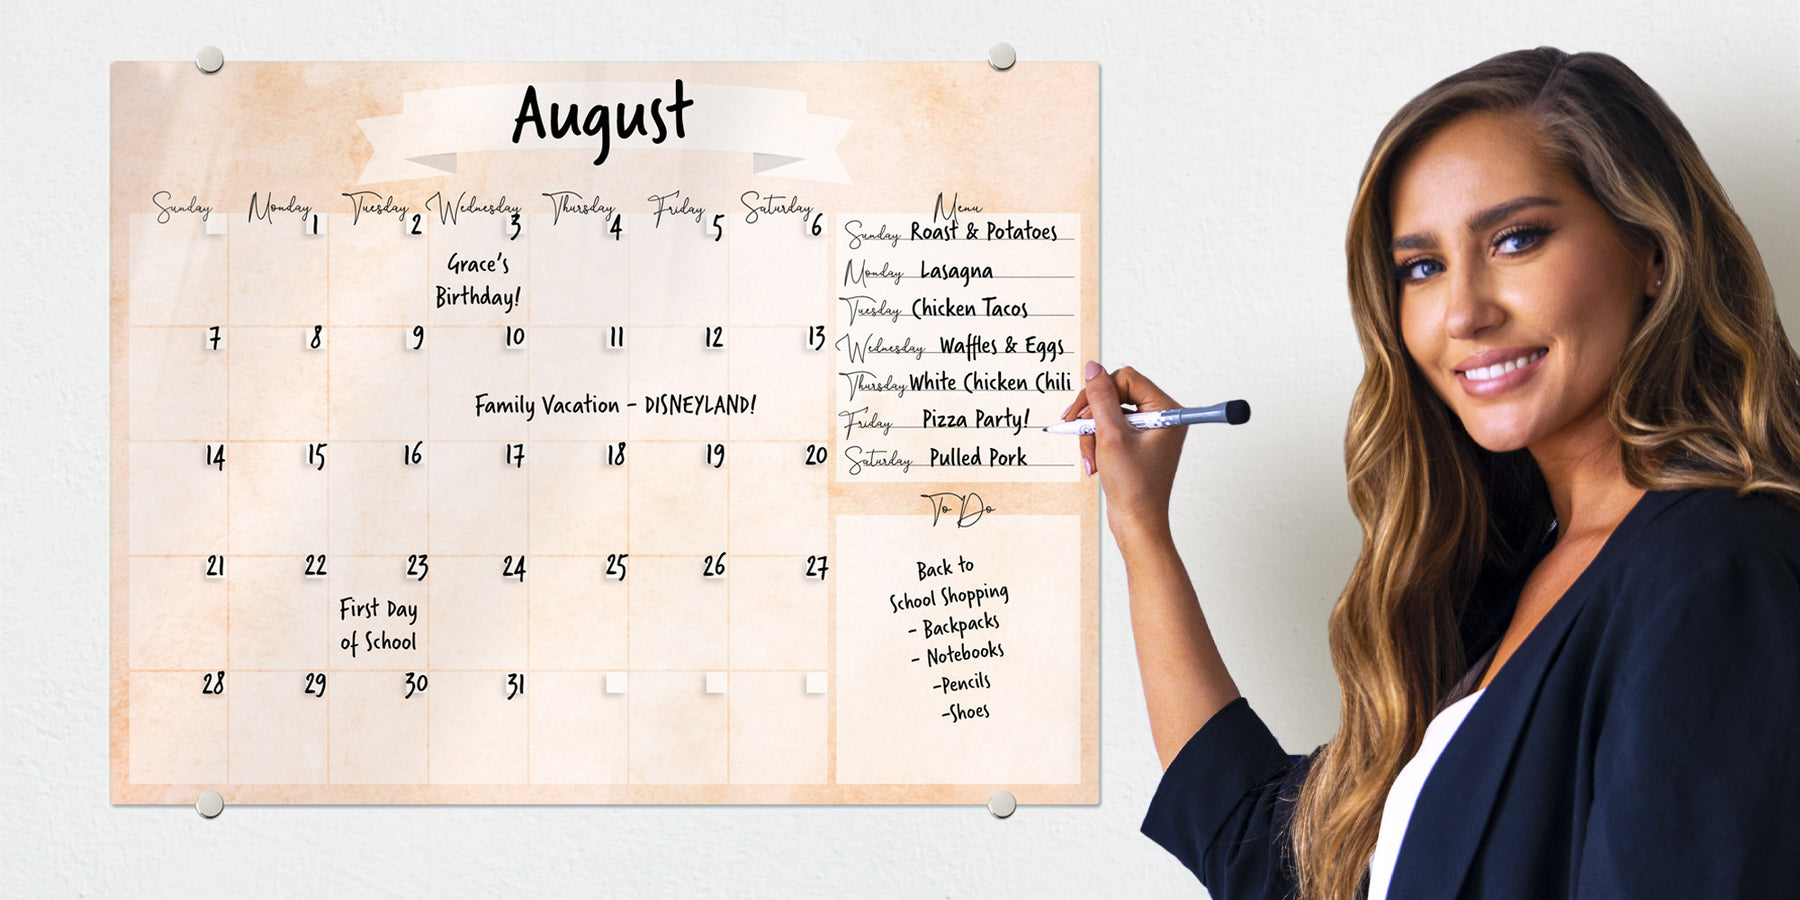 August
Sunday Monday Tuesday Wednesday Thursday Friday Saturday
1 2 3 4 5 6
Grace's
Birthday!
7 8 9 10 11 12 13
Family Vacation - DISNEYLAND!
14 15 16 17 18 19 20
21 22 23 24 25 26 27
First Day
of School
28 29 30 31
Menu
Sunday Roast & Potatoes
Monday Lasagna
Tuesday Chicken Tacos
Wednesday Waffles & Eggs
Thursday White Chicken Chili
Friday Pizza Party!
Saturday Pulled Pork
To Do
Back to
School Shopping
- Backpacks
- Notebooks
-Pencils
-Shoes